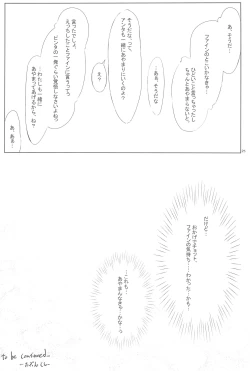 あ、そうだ…
ファインのとこいかなきゃ…
ひどいこと言っちゃったし
ちゃんとあやまらないと。
あぁ、そうだな
そうだな、って
アンタも一緒にあやまりにいくのよ？
え？
言ったでしょ。
えっちしたことファインに言うって
ビンタの一発ぐらい覚悟しなさいよねっ
…わたしも一緒に
あやまってあげるから、ね？
あ、あぁ…
だけど…
おかげでチョット、
ファインの気持ち…わかった…かも…
…これも…
あやまんなきゃ…かな…っ
to be continued…